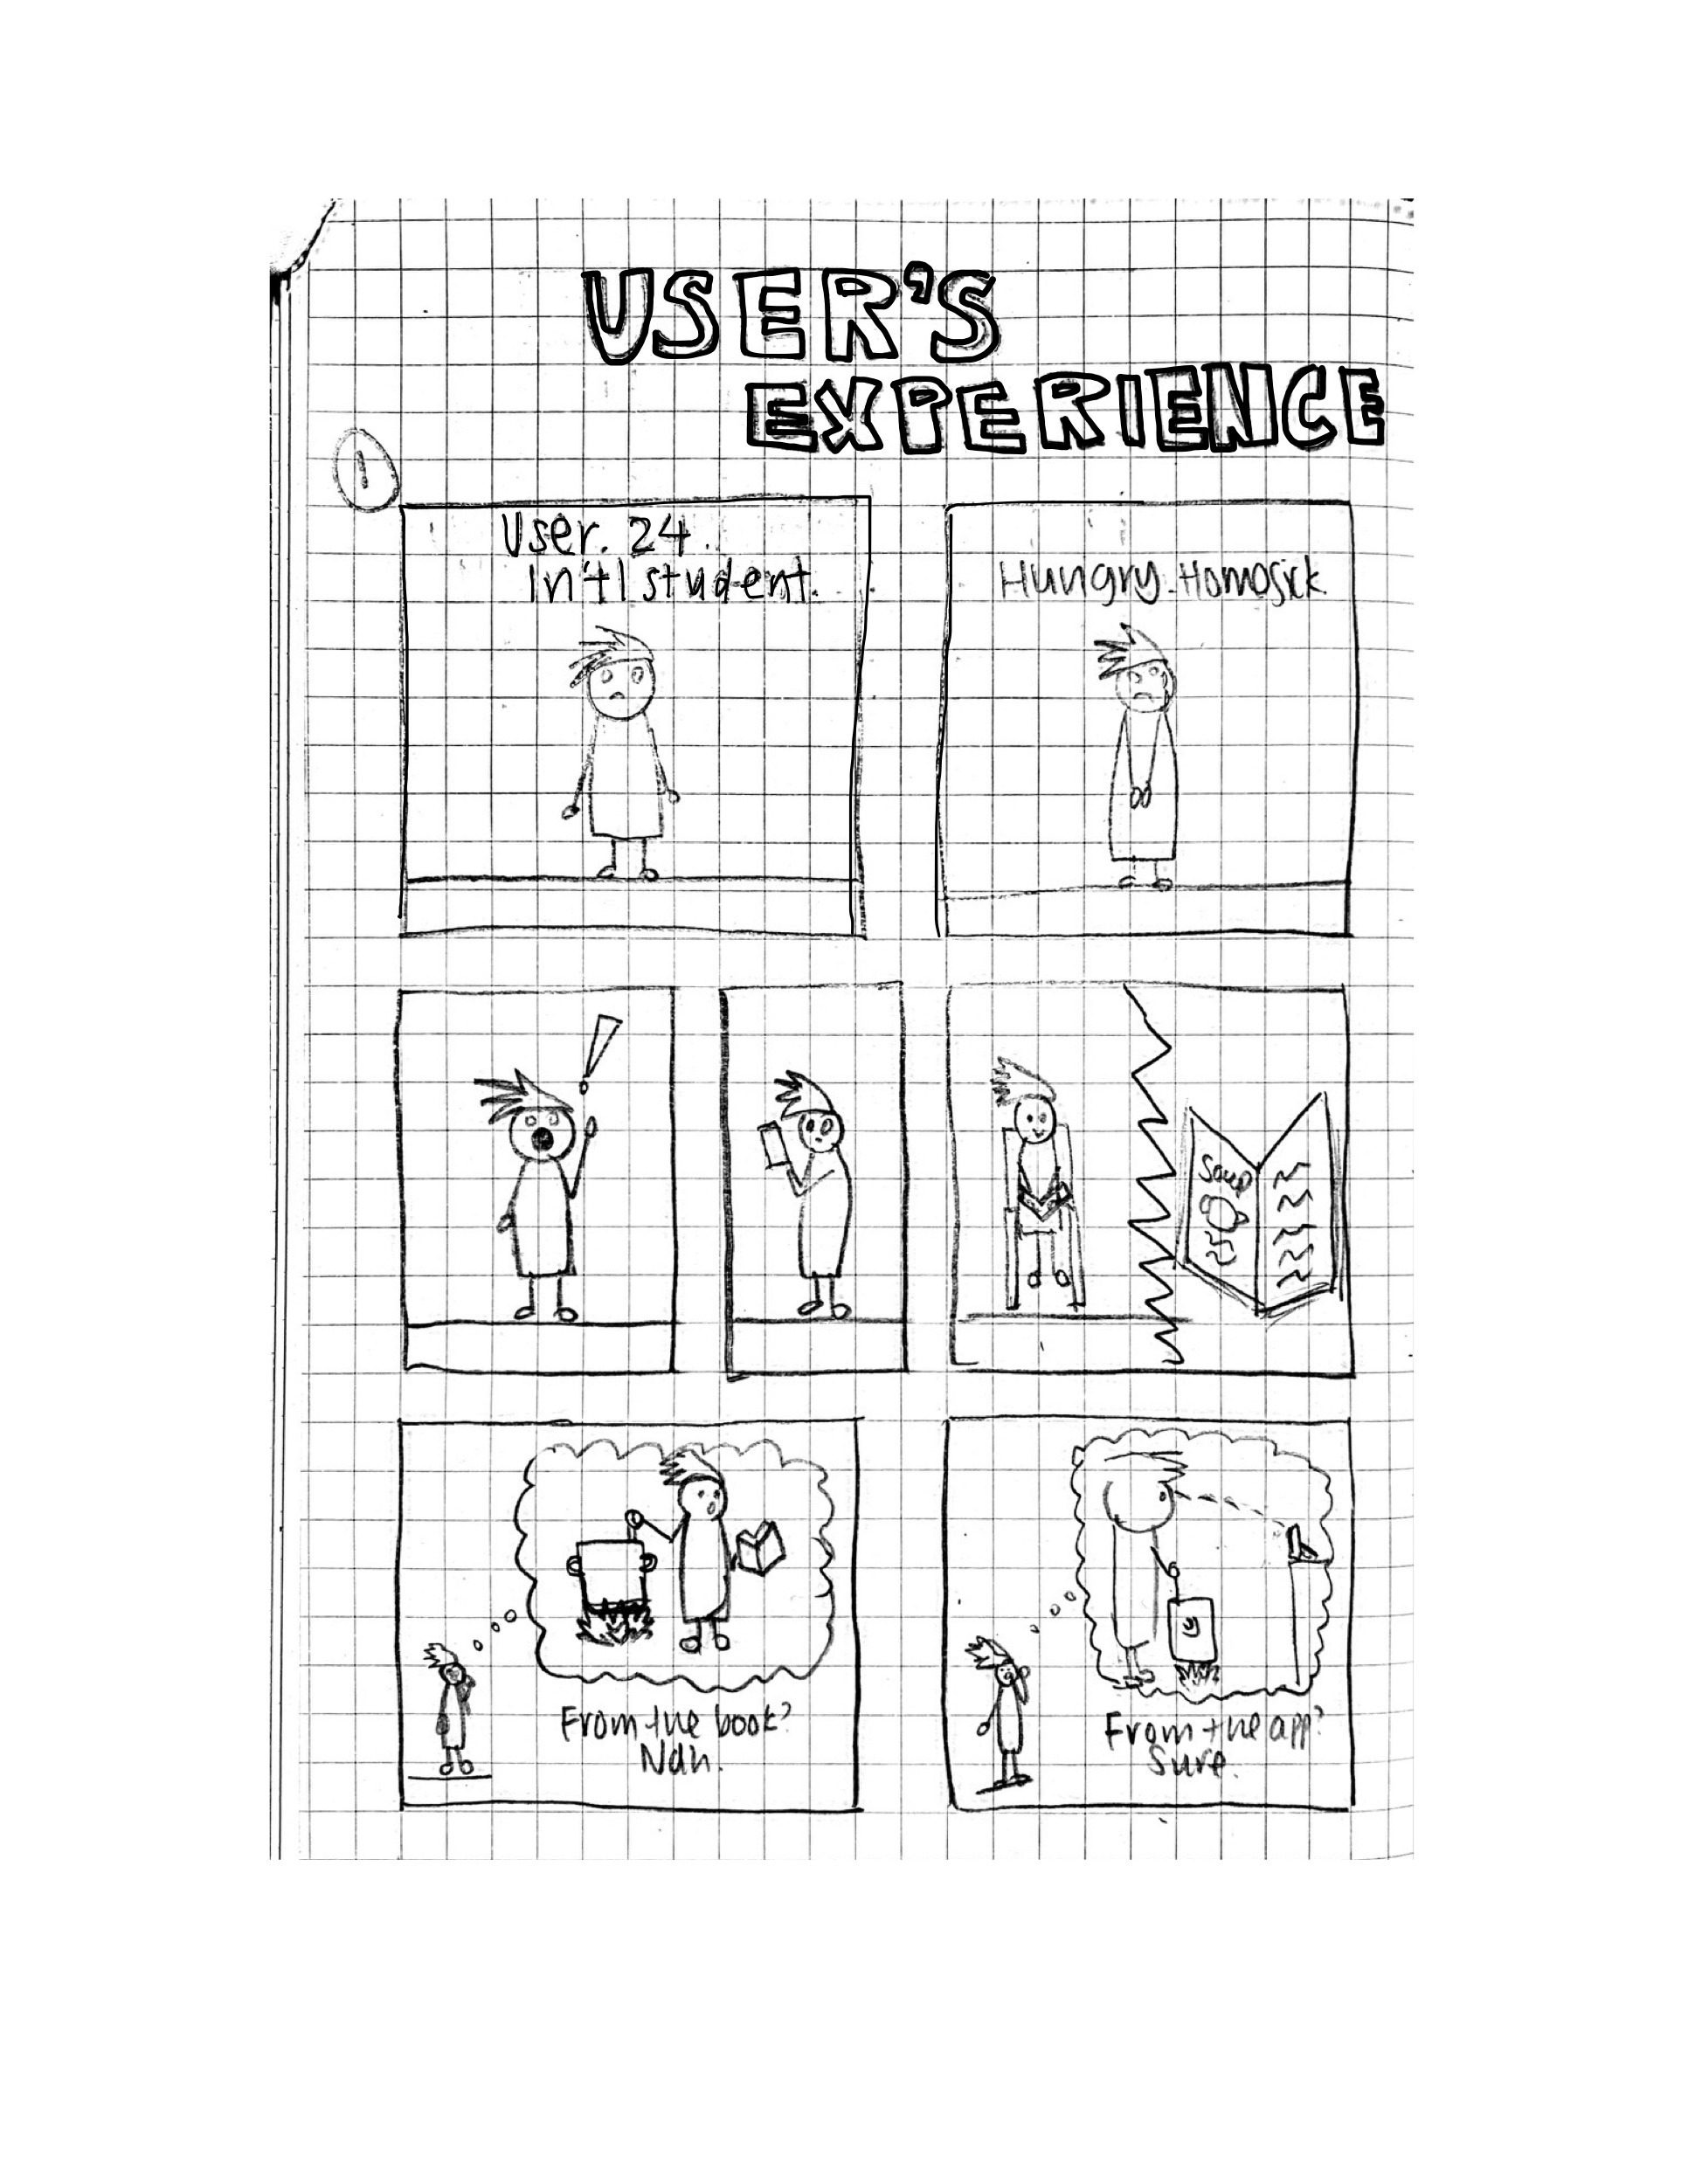 USER'S
EXPERIENCE
1
User. 24.
In't'l student.
Hungry. Homosick.
Soup
From the book?
Nah.
From the app?
Sure.